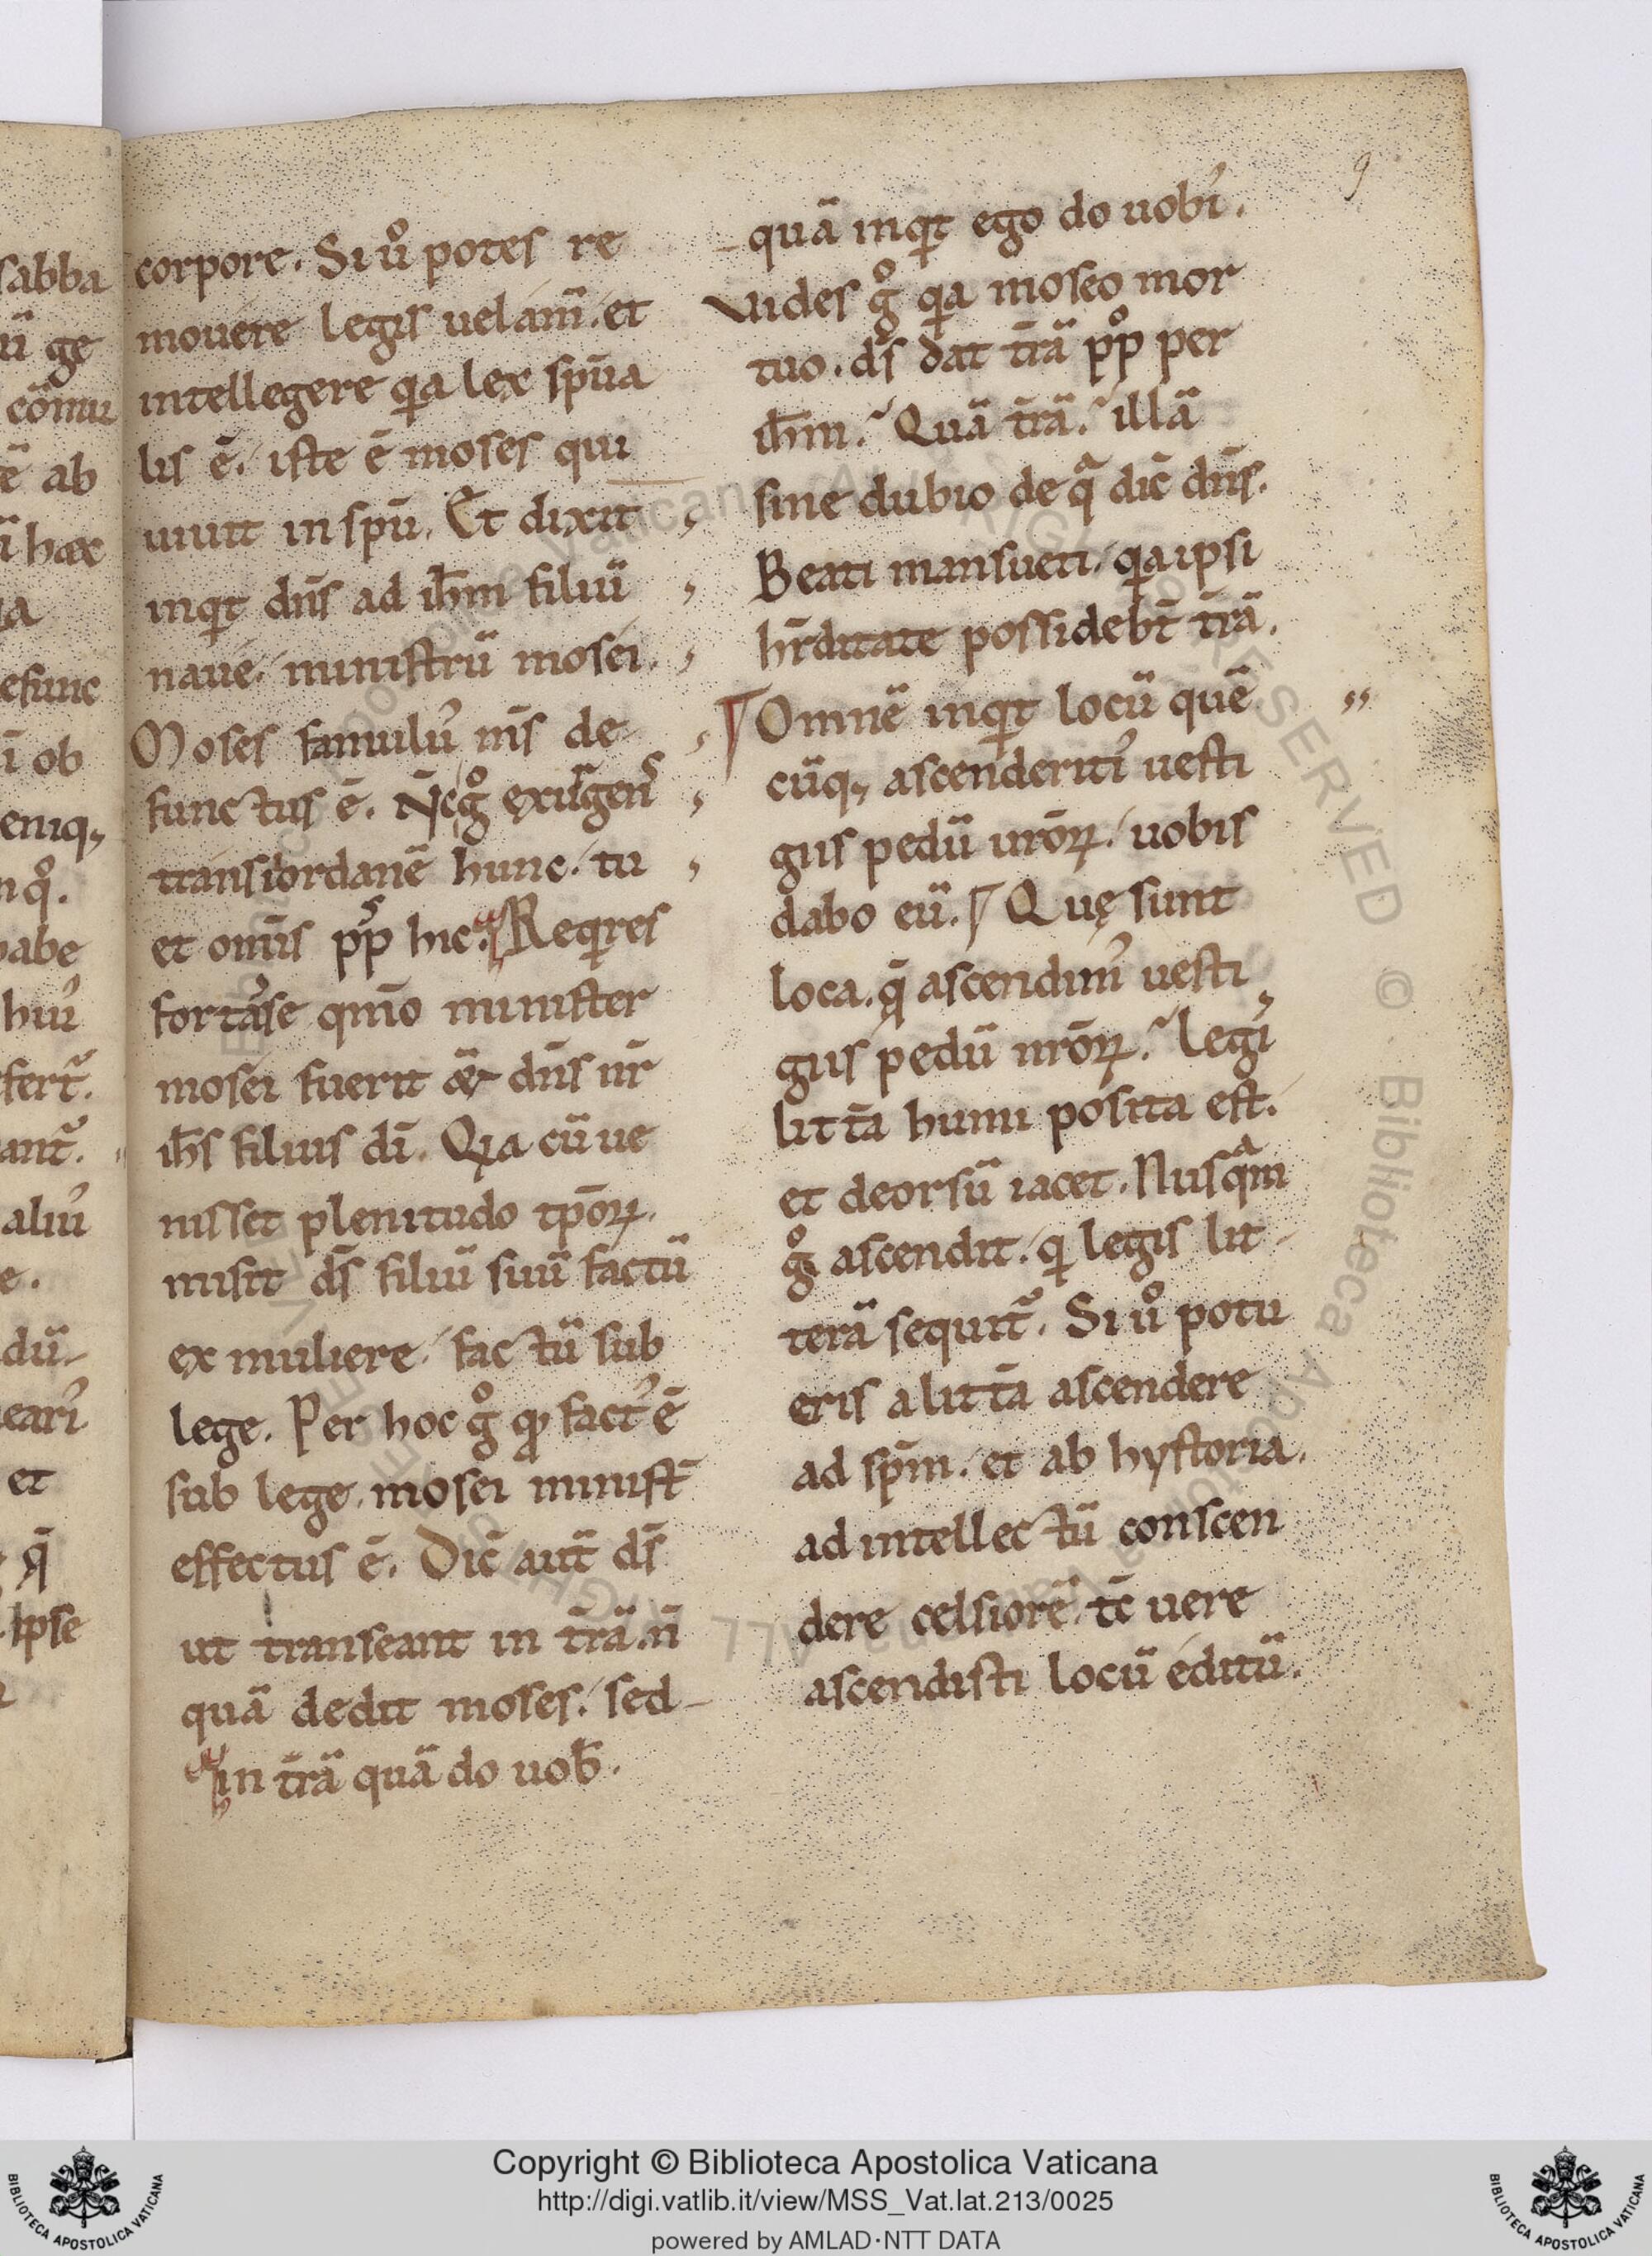 sabba
ū ge
cōmu
ē ab
ī hæc
efunc
ī ob
eniq,
nqͦ.
abe
hui᾽
fert᷑.
ant᷑.
aliu᾽
e.
dū
eari᾽
et
q̄
Ipse
corpore. Si uͦ potes re
mouere legis uelam̄. et
intellegere qa lex spūa
lis ē. iste ē moses qui
uiuit in spū. Et dixit
inqt dn̄s ad ih̄m filiū
naue. ministrū mosei.
Moses famulu᾽ m̄s de
functus ē. Nc̄ gͦ exurgens
transi iordanē hunc. tu
et om̄is pp̄s hic. Reqres
fortasse qm̄o minister
mosei fuerit &̄ dn̄s nr̄
ih̄s filius dī. Qia cū ue
nisset plenitudo tpōꝝ.
misit ds̄ filiū suū factū
ex muliere. factū sub
lege. Per hoc gͦ qꝫ fact᾽ ē
sub lege. mosei minist̄
effectus ē. Dic̄ aut̄ ds̄
ut transeant in tr̄ā. n̄
quā dedit moses. sed
in tr̄ā quā do uob̄.
quā inqt ego do uobi᾽.
Vides gͦ qa moseo mor
tuo. ds̄ dat tr̄ā ppͦ per
ih̄m. Quā tr̄ā. illā
sine dubio de qᵃ dic̄ dn̄s.
Beati mansueti. qa ipsi
hr̄ditate possidebt̄ tr̄ā.
Omnē inqt locū quē
cūq, ascenderiti᾽ uesti
giis pedū urōꝝ. uobis
dabo eū. Quę sunt
loca. q̄ ascendim᾽ uesti
giis pedū nrōꝝ. legi᾽
litt̄a humi posita est.
et deorsū iacet. Nusqᵃm
gͦ ascendit. q legis lit
terā sequit᷑. Si uͦ potu
eris a litt̄a ascendere
ad spm̄. et ab hystoria.
ad intellectū conscen
dere celsiorē. tc̄ uere
ascendisti locū editū.
9
Copyright © Biblioteca Apostolica Vaticana
http://digi.vatlib.it/view/MSS_Vat.lat.213/0025
powered by AMLAD·NTT DATA
BIBLIOTECA APOSTOLICA VATICANA
BIBLIOTECA APOSTOLICA VATICANA